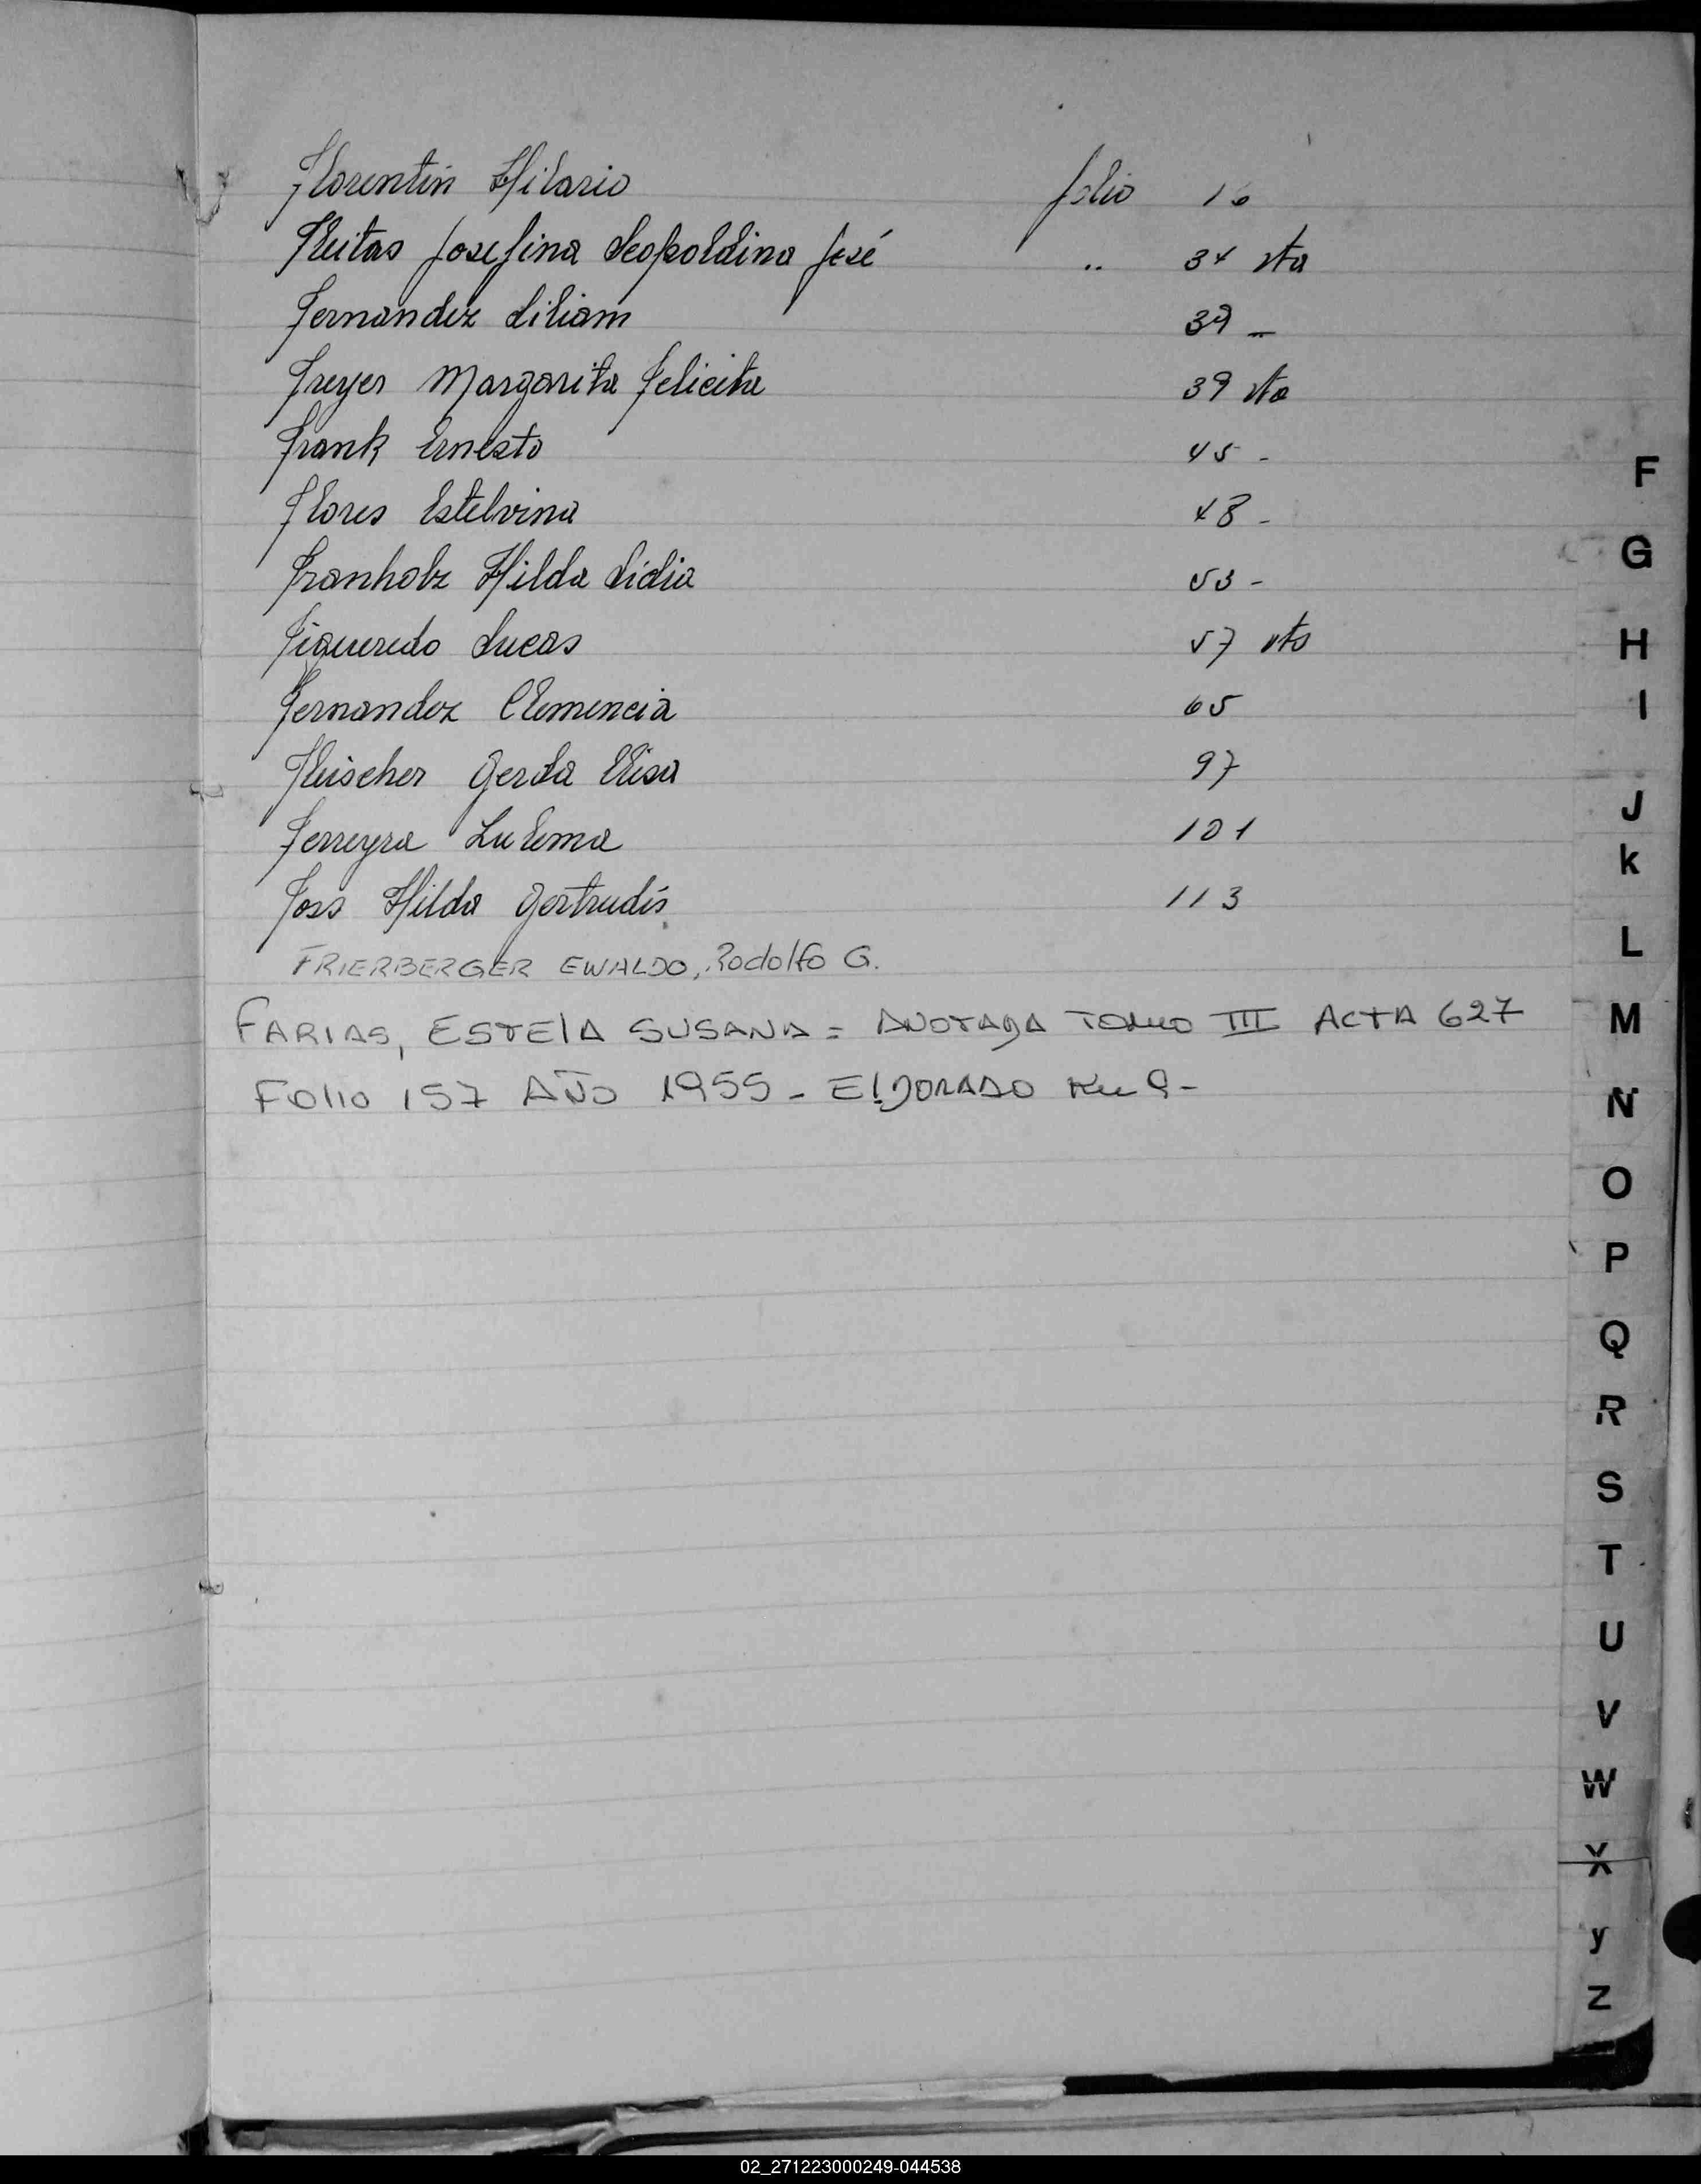 Florentin Hilario folio 16
Fleitas Josefina Leopoldina José " 34 vta
Fernandez Liliam 39 -
Freyer Margarita Felicita 39 vta
Frank Ernesto 45 -
Flores Estelvina 48 -
Franholz Hilda Lidia 53 -
Figueredo Lucas 57 vta
Fernandez Clemencia 65
Fleischer Gerda Elisa 97
Ferreyra Zulema 101
Foss Hilda Gertrudis 113
FRIERBERGER EWALDO, Rodolfo G.
FARIAS, ESTELA SUSANA = ANOTADA TOMO III ACTA 627
FOLIO 157 AÑO 1955 - ELDORADO Km 9 -
F
G
H
I
J
k
L
M
N
O
P
Q
R
S
T
U
V
W
X
y
Z
02_271223000249-044538